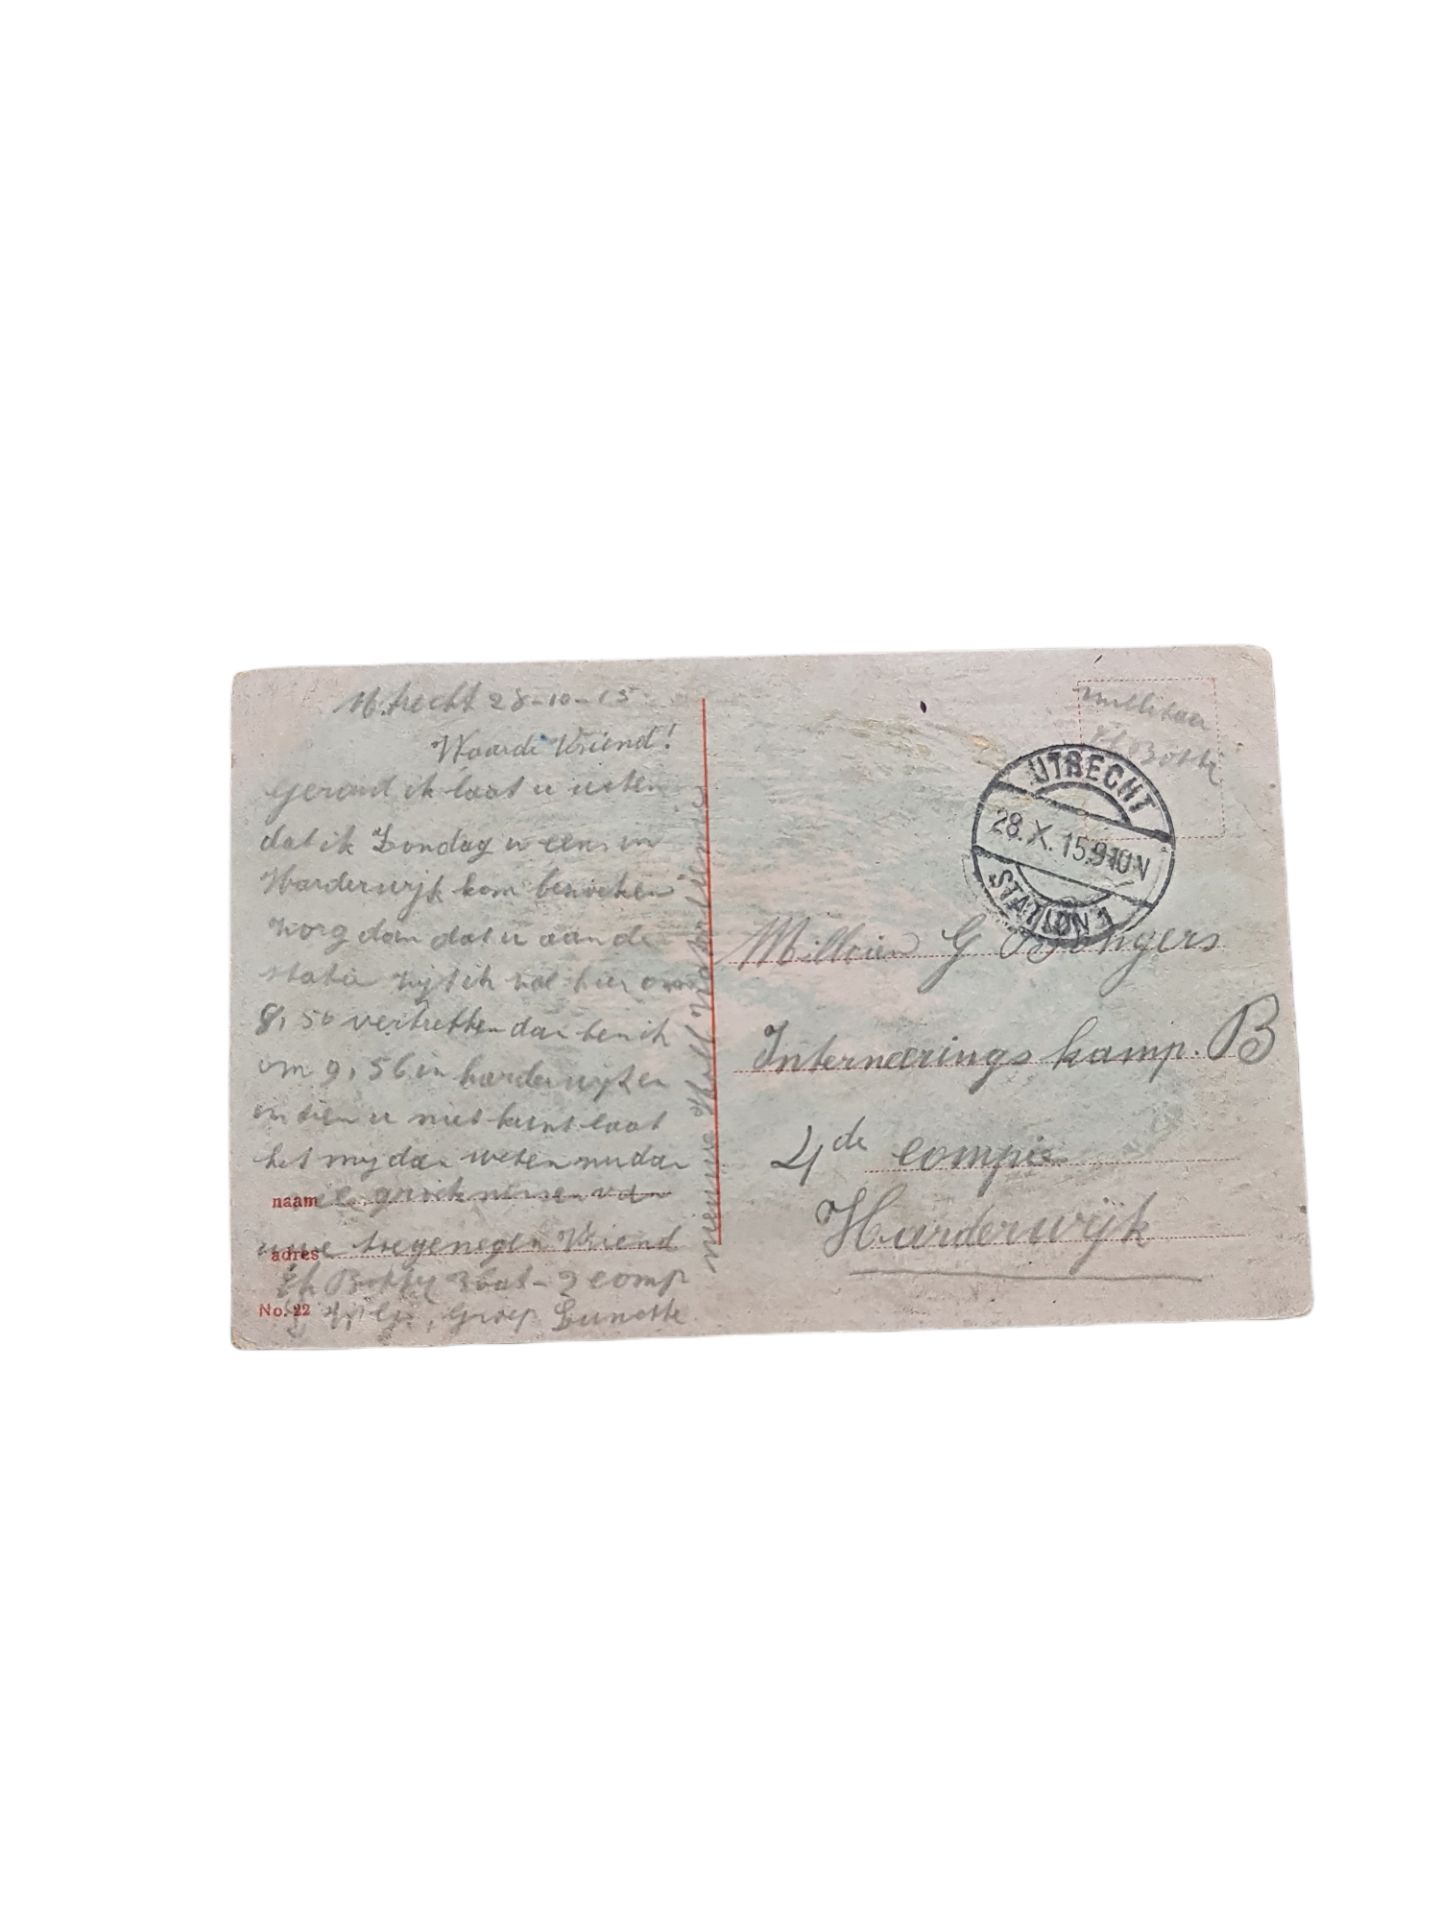 Utrecht 28-10-15
Waarde Vriend!
Gerard ik laat u weten
dat ik Zondag u eens in
Harderwijk kom bezoeken
zorg dan dat u aan de
statie zijt ik zal hier om
8,50 vertrekken dan ben ik
om 9,56 in harderwijk en
indien u niet kunt laat
het mij dan weten nu dan
naam
groeten van
adres
uwe toegenegen Vriend
3 bat - 2 comp
No. 22
Groep Lunette
millitair
UTRECHT
28.X.15.9-10N
STATION 1
G Bongers
Interneerings kamp. B
4de compie
Harderwijk